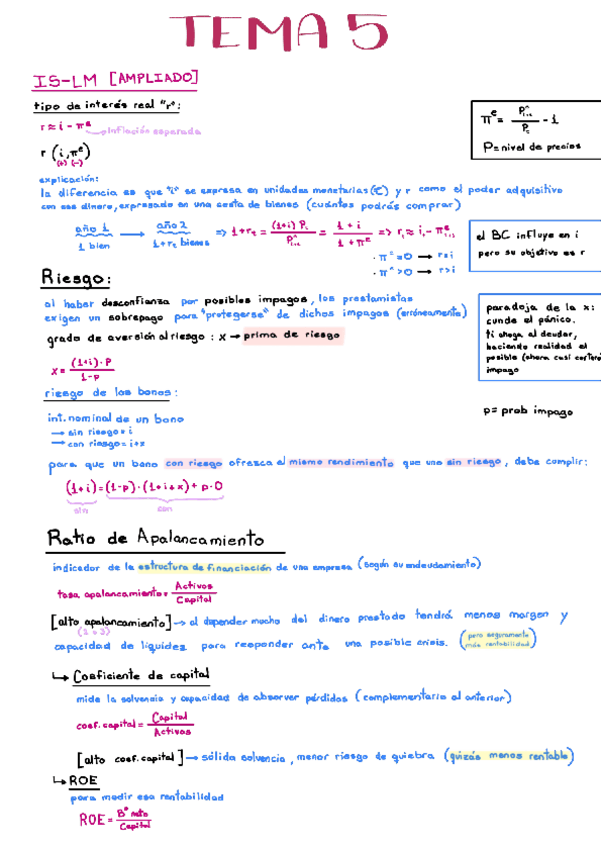 TEMA 5
IS-LM [AMPLIADO]
tipo de interés real "r":
r ≈ i - πᵉ → inflación esperada
r (i, πᵉ)
(+) (-)
πᵉ = Pᵉₜ₊₁ / Pₜ - 1
P = nivel de precios
explicación:
la diferencia es que "i" se expresa en unidades monetarias (€) y r como el poder adquisitivo
con ese dinero, expresado en una cesta de bienes (cuántos podrás comprar)
año 1 → año 2
1 bien 1+rₜ bienes
⇒ 1+rₜ = (1+i) Pₜ / Pᵉₜ₊₁ = 1 + i / 1 + πᵉ ⇒ rₜ ≈ iₜ - πᵉₜ₊₁
· πᵉ = 0 → r = i
· π^ > 0 → r > i
el BC influye en i
pero su objetivo es r
Riesgo:
al haber desconfianza por posibles impagos, los prestamistas
exigen un sobrepago para "protegerse" de dichos impagos (erróneamente)
grado de aversión al riesgo : x → prima de riesgo
x = (1+i)·P / 1-p
paradoja de la x:
cunde el pánico,
ti ahoga al deudor,
haciendo realidad el
posible (ahora casi certero)
impago
riesgo de los bonos:
p = prob impago
int. nominal de un bono
→ sin riesgo = i
→ con riesgo = i+x
para que un bono con riesgo ofrezca el mismo rendimiento que uno sin riesgo, debe cumplir:
(1+i) = (1-p)·(1+i+x) + p·0
sin con
Ratio de Apalancamiento
indicador de la estructura de financiación de una empresa (según su endeudamiento)
tasa apalancamiento = Activos / Capital
[alto apalancamiento] → al depender mucho del dinero prestado tendrá menos margen y
capacidad de liquidez para responder ante una posible crisis. (pero seguramente
más rentabilidad)
↳ Coeficiente de capital
mide la solvencia y capacidad de absorber pérdidas (complementario al anterior)
coef. capital = Capital / Activos
[alto coef. capital] → sólida solvencia, menor riesgo de quiebra (quizás menos rentable)
↳ ROE
para medir esa rentabilidad
ROE = Bº neto / Capital